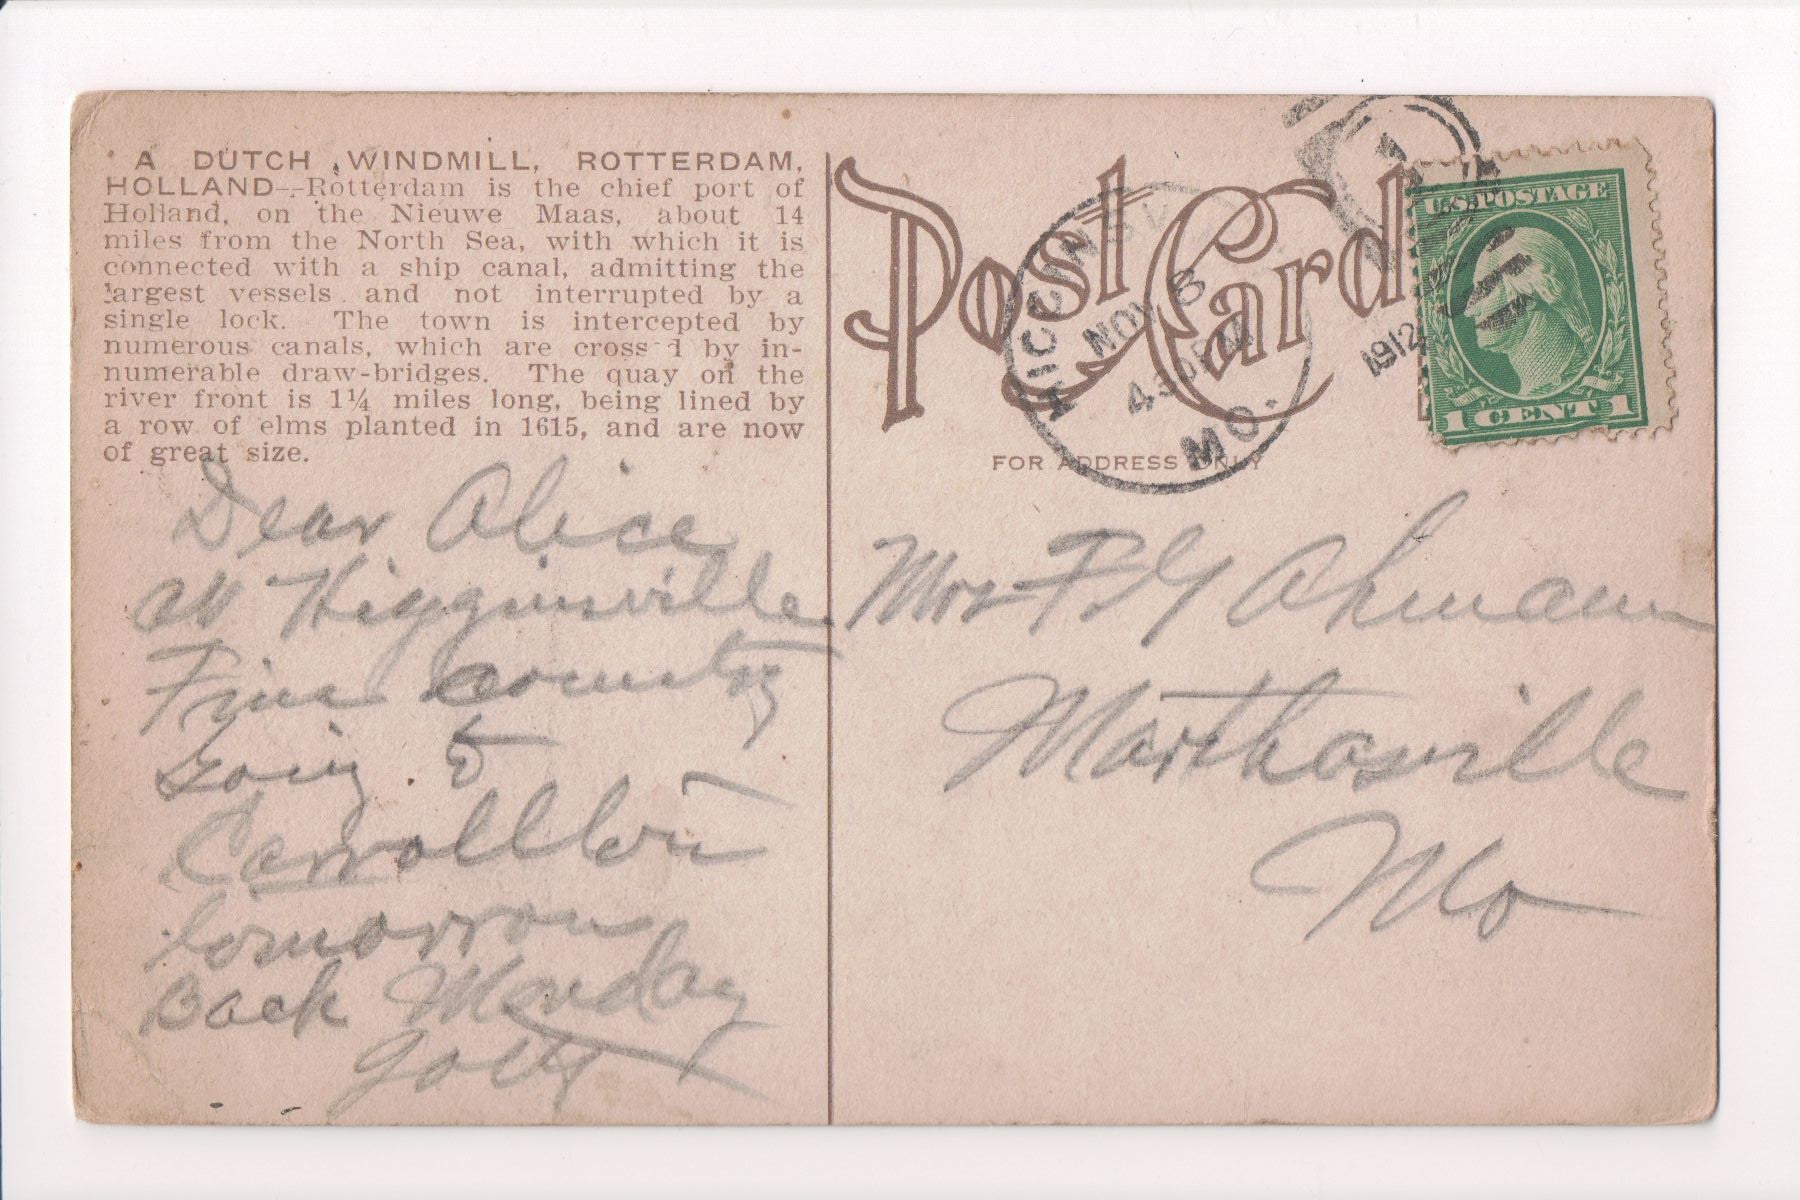 A DUTCH WINDMILL, ROTTERDAM,
HOLLAND--Rotterdam is the chief port of
Holland, on the Nieuwe Maas, about 14
miles from the North Sea, with which it is
connected with a ship canal, admitting the
largest vessels and not interrupted by a
single lock. The town is intercepted by
numerous canals, which are crossed by in-
numerable draw-bridges. The quay on the
river front is 1¼ miles long, being lined by
a row of elms planted in 1615, and are now
of great size.
Dear Alice
at Higginsville
Fine country
going to
Carrollton
tomorrow
Back Monday
Post Card
FOR ADDRESS ONLY
HIGGINSVILLE
NOV 8
430PM
1912
MO.
U.S. POSTAGE
1 CENT 1
Mrs F G Ahmann
Marthasville
Mo